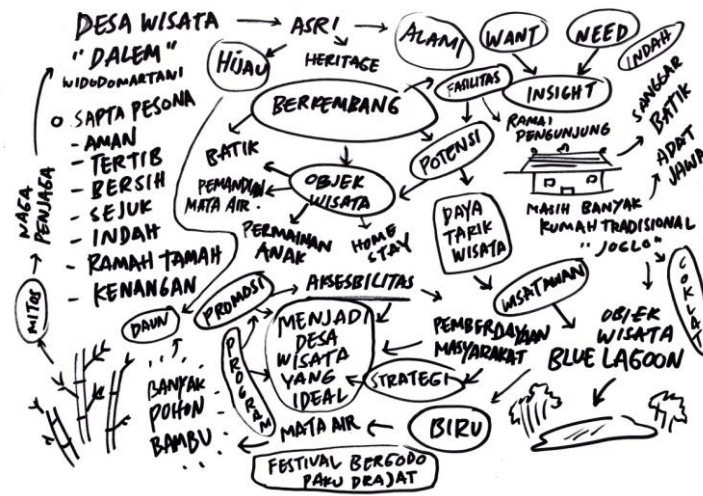 DESA WISATA
"DALEM"
WIDODOMARTANI
ASRI
ALAMI
HIJAU
HERITAGE
WANT
NEED
INDAH
INSIGHT
FASILITAS
RAMAI
PENGUNJUNG
SANGGAR
BATIK
ADAT
JAWA
BERKEMBANG
SAPTA PESONA
- AMAN
- TERTIB
- BERSIH
- SEJUK
- INDAH
- RAMAH TAMAH
- KENANGAN
NAGA
PENJAGA
MITOS
BATIK
PEMANDIAN
MATA AIR.
OBJEK
WISATA
PERMAINAN
ANAK
HOME
STAY
POTENSI
DAYA
TARIK
WISATA
MASIH BANYAK
RUMAH TRADISIONAL
"JOGLO"
COKLAT
DAUN
PROMOSI
AKSESBILITAS
WISATAWAN
PROGRAM
MENJADI
DESA
WISATA
YANG
IDEAL
PEMBERDAYAAN
MASYARAKAT
STRATEGI
OBJEK
WISATA
BLUE LAGOON
BANYAK
POHON
BAMBU
MATA AIR
BIRU
FESTIVAL BERGODO
PAKU DRAJAT